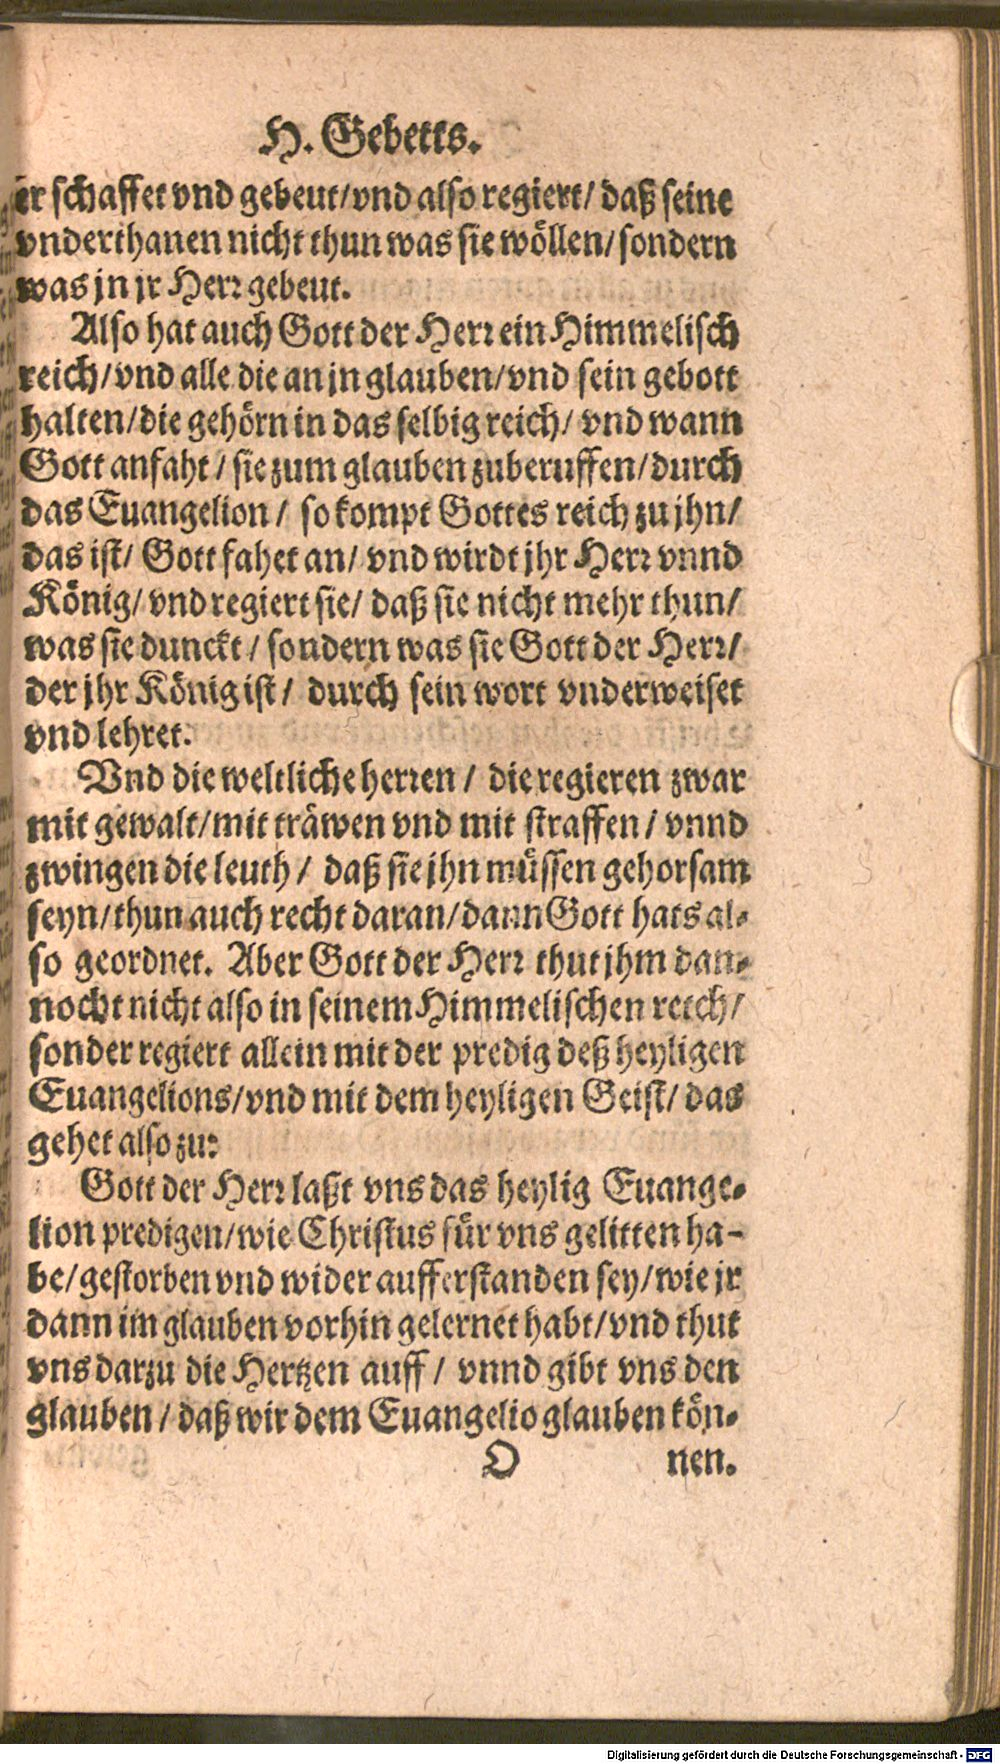 H. Gebetts.
er schaffet vnd gebeut/vnd also regiert/ daß seine
vnderthanen nicht thun was sie wöllen/ sondern
was jn jr Herr gebeut.
Also hat auch Gott der Herr ein Himmelisch
reich/vnd alle die an jn glauben/vnd sein gebott
halten/die gehörn in das selbig reich/ vnd wann
Gott anfaht / sie zum glauben zuberuffen/durch
das Euangelion / so kompt Gottes reich zu jhn/
das ist/ Gott fahet an/ vnd wirdt jhr Herr vnnd
König/ vnd regiert sie/ daß sie nicht mehr thun/
was sie dunckt / sondern was sie Gott der Herr/
der jhr König ist / durch sein wort vnderweiset
vnd lehret.
Vnd die weltliche herren / die regieren zwar
mit gewalt/mit träwen vnd mit straffen / vnnd
zwingen die leuth / daß sie jhn müssen gehorsam
seyn/thun auch recht daran/dann Gott hats al-
so geordnet. Aber Gott der Herr thut jhm dan-
nocht nicht also in seinem Himmelischen reich/
sonder regiert allein mit der predig deß heyligen
Euangelions/vnd mit dem heyligen Geist/ das
gehet also zu:
Gott der Herr laßt vns das heylig Euange-
lion predigen/wie Christus für vns gelitten ha-
be/gestorben vnd wider aufferstanden sey/wie jr
dann im glauben vorhin gelernet habt/vnd thut
vns darzu die Hertzen auff / vnnd gibt vns den
glauben / daß wir dem Euangelio glauben kön-
O nen.
Digitalisierung gefördert durch die Deutsche Forschungsgemeinschaft - DFG